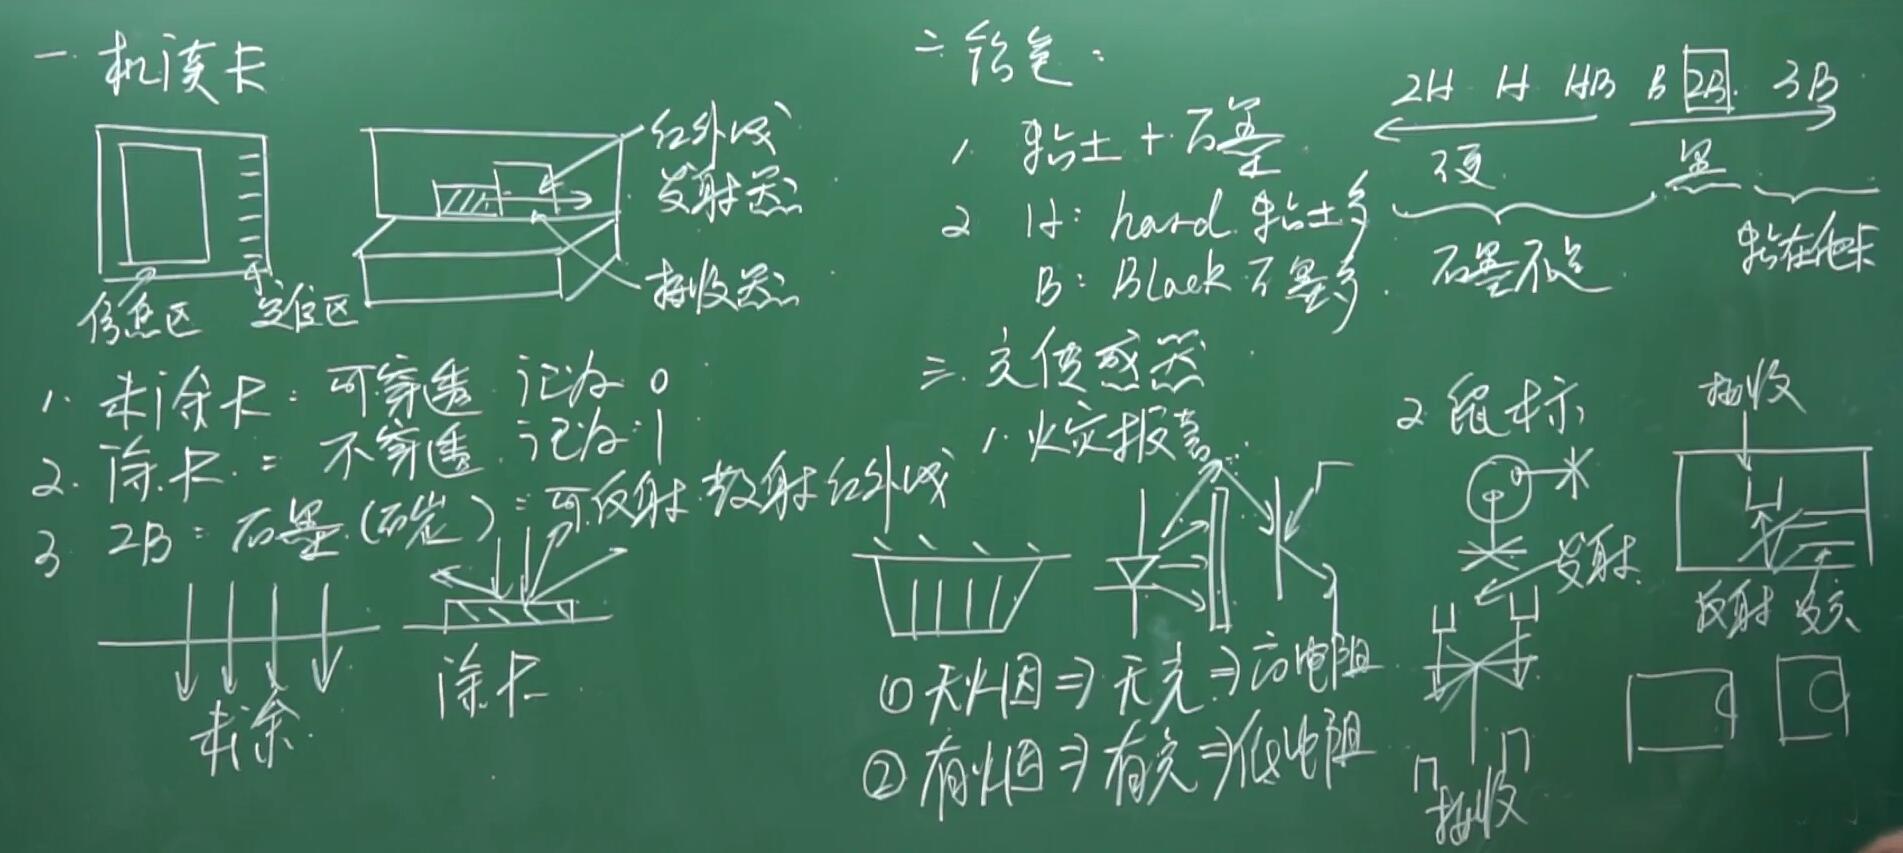 一. 机读卡
红外线
发射器
接收器
信息区 定位区
1. 未涂卡: 可穿透 记为 0
2. 涂卡: 不穿透 记为 1
3 2B: 石墨(石炭): 可反射.散射红外线
未涂
涂卡
二 铅笔:
1. 粘土 + 石墨
2 H: hard 粘土多
B: Black 石墨多
2H H HB B 2B 3B
硬 黑
石墨不足
粘在他卡
三. 光传感器
1. 火灾报警
① 无烟 ⇒ 无光 ⇒ 高电阻
② 有烟 ⇒ 有光 ⇒ 低电阻
2 鼠标
发射
接收
接收
反射 发光